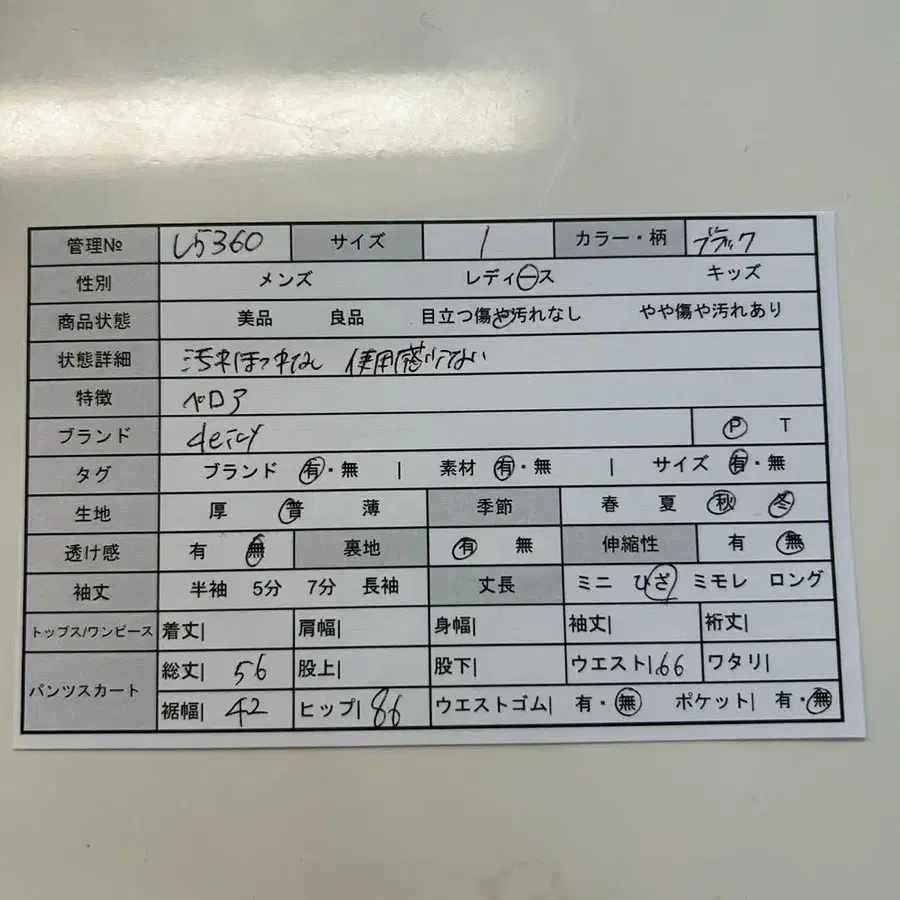 管理№ しち360 サイズ 1 カラー・柄 ブラック
性別 メンズ レディース キッズ
商品状態 美品 良品 目立つ傷や汚れなし やや傷や汚れあり
状態詳細 汚れほつれなし 使用感少ない
特徴 ベロア
ブランド deicy P T
タグ ブランド 有・無 | 素材 有・無 | サイズ 有・無
生地 厚 普 薄 季節 春 夏 秋 冬
透け感 有 無 裏地 有 無 伸縮性 有 無
袖丈 半袖 5分 7分 長袖 丈長 ミニ ひざ ミモレ ロング
トップス/ワンピース 着丈| 肩幅| 身幅| 袖丈| 裄丈|
パンツスカート 総丈| 56 股上| 股下| ウエスト| 66 ワタリ|
裾幅| 42 ヒップ| 86 ウエストゴム| 有・無 ポケット| 有・無